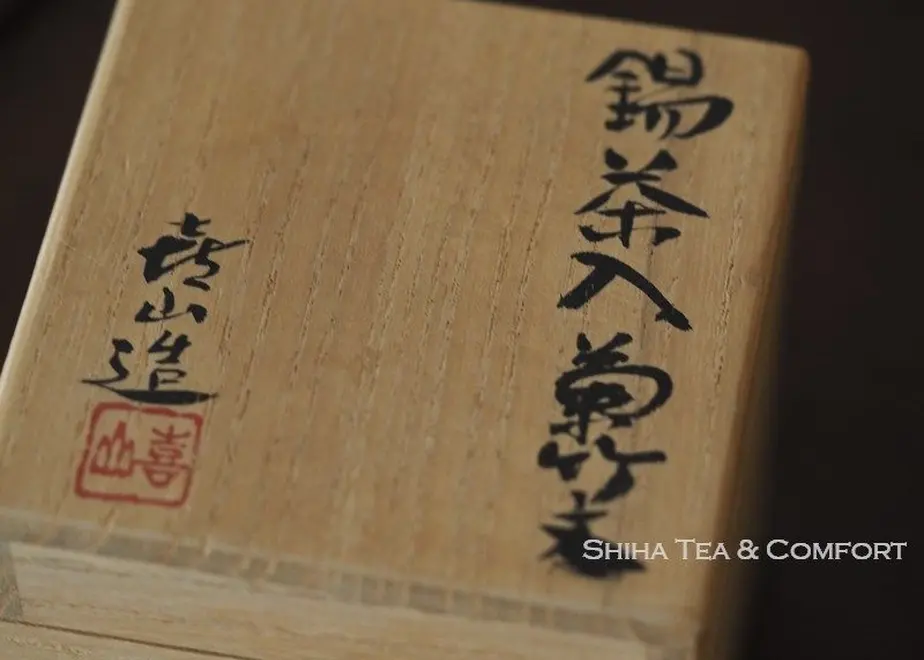 錫茶入 菊竹文
喜山造
喜山
SHIHA TEA & COMFORT